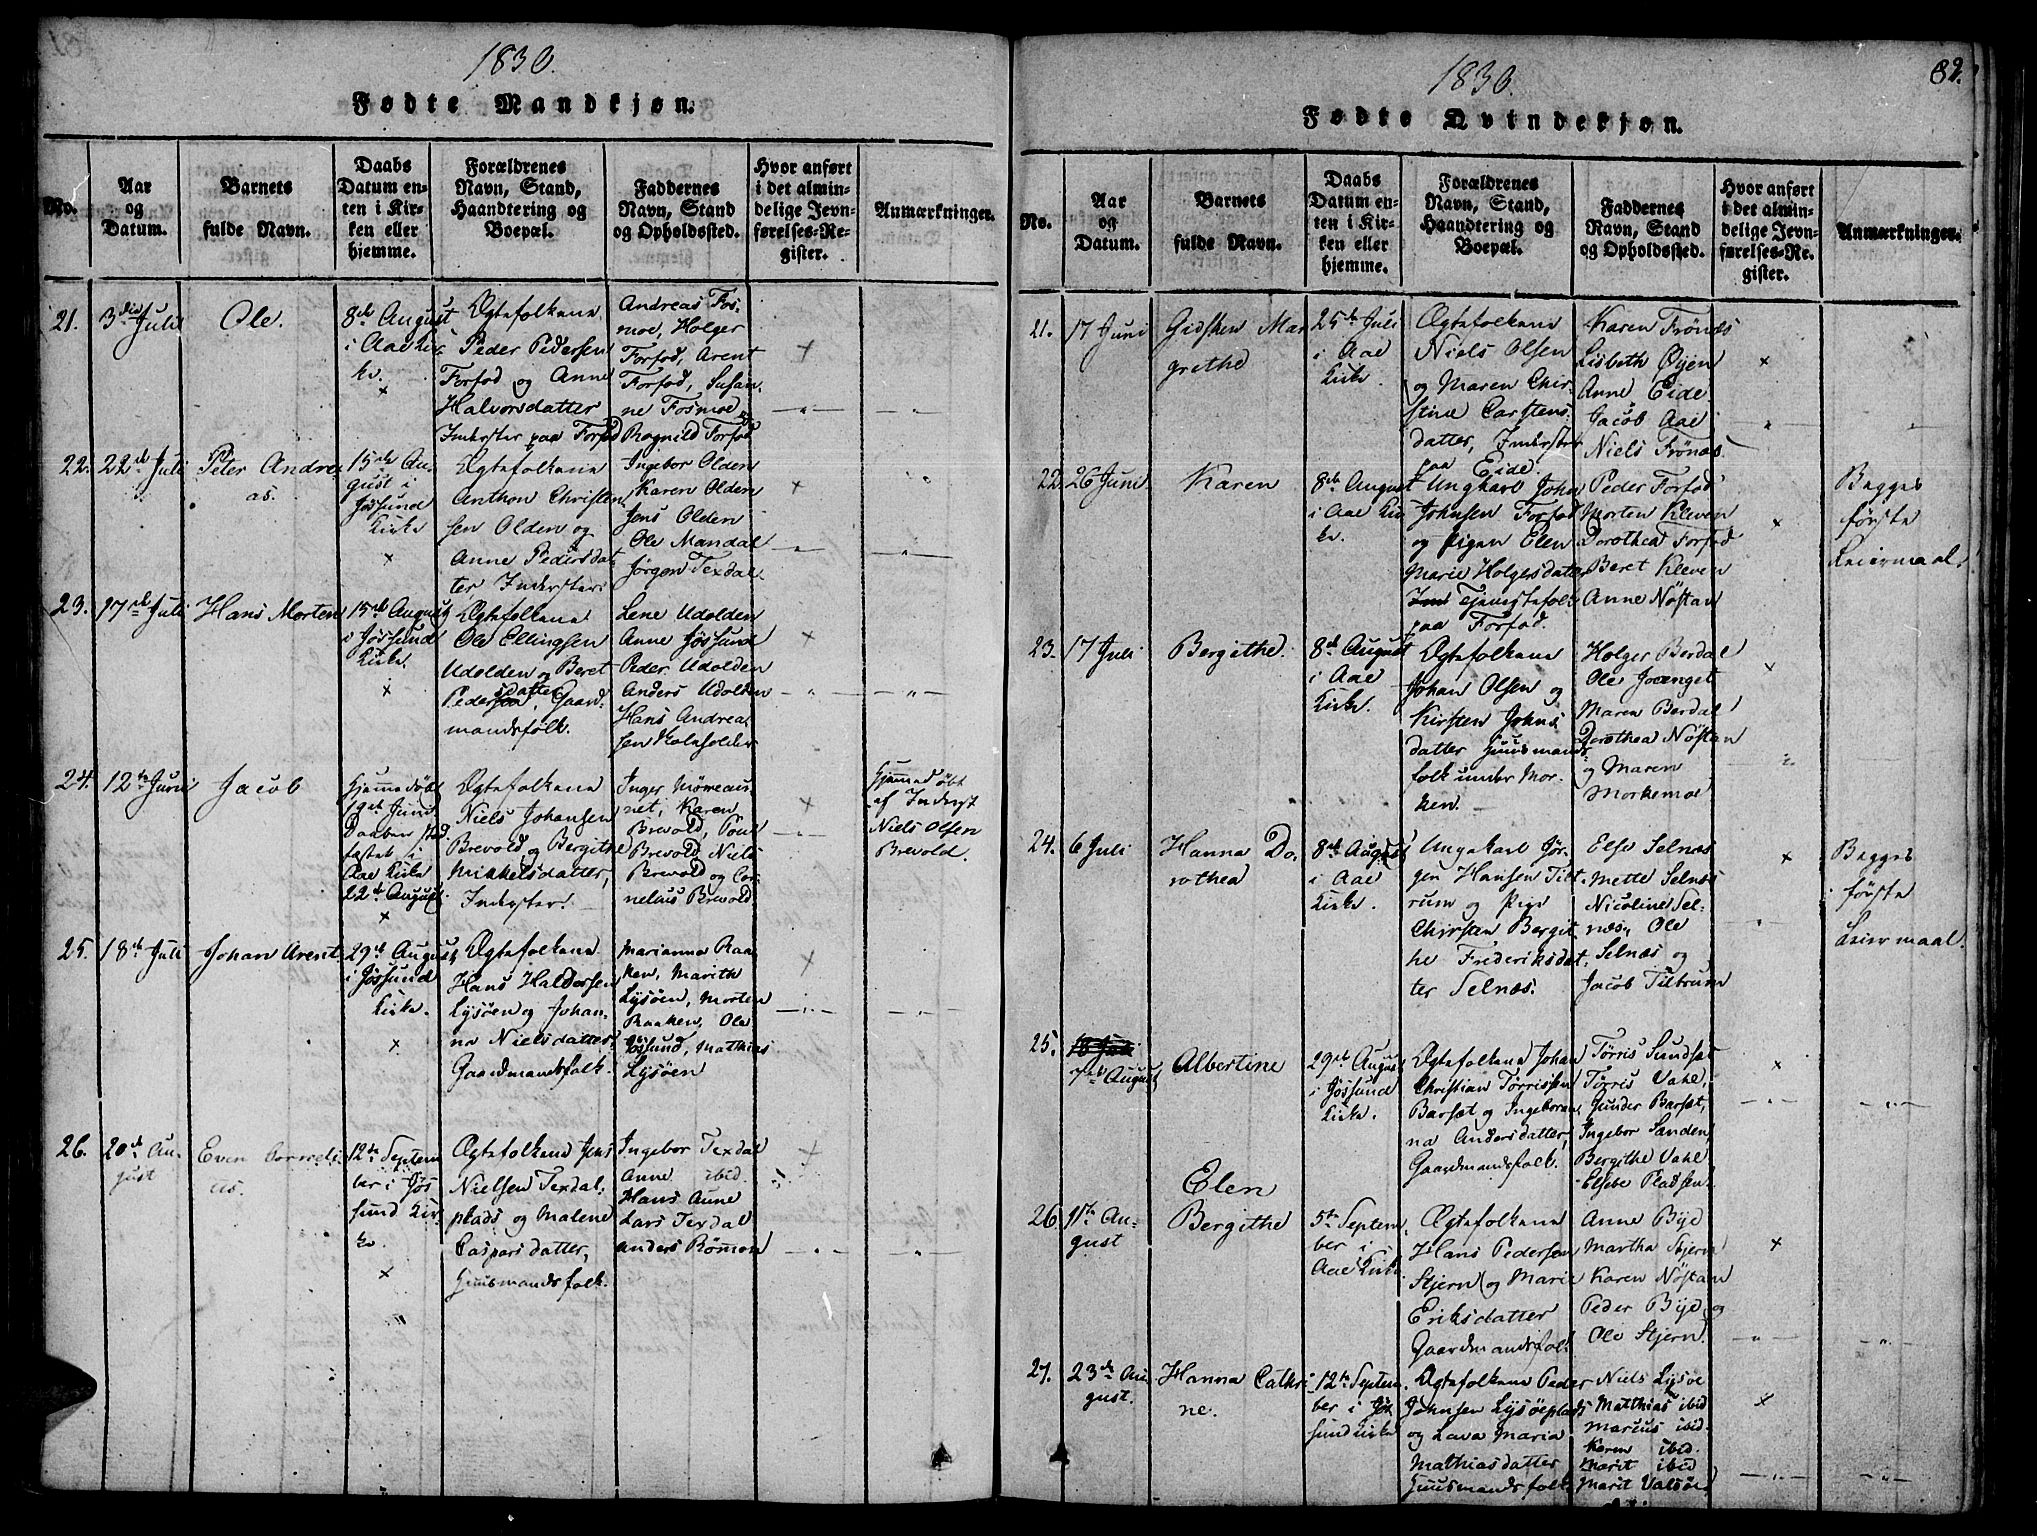 1830.
Fødte Mandkjøn.
No.
Aar
og
Datum.
Barnets
fulde Navn.
Daabs
Datum en-
ten i Kir-
ken eller
hjemme.
Forældrenes
Navn, Stand,
Haandtering og
Boepæl.
Faddernes
Navn, Stand
og Opholdssted.
Hvor anført
i det almin-
delige Jevn-
førelses-Re-
gister.
Anmærkninger.
21.
3die Juli
Ole.
8de August
i Aae Kir-
ke.
×
Ægtefolkene
Peder Pedersen
Forfod og Anne
Halvorsdatter
Inderster paa Forfod
Andreas Fos-
moe, Holger
Forfod, Arent
Forfod, Susan-
ne Fosmoe og
Ragnild Forfod
×
22.
22de Juli
Peter Andre
as.
15de Au-
gust i
Jøssund
Kirke
×
Ægtefolkene
Anthon Christen-
sen Olden og
Anne Pedersdat-
ter Inderster.
Ingebor Olden
Karen Olden
Jens Olden
Ole Mandal
Jørgen Texdal.
×
23.
17de Juli
Hans Morten
15de August
i Jøssund
Kirke.
×
Ægtefolkene
Ole Ellingsen
Udolden og Beret
Pedersdatter, Gaard-
mandsfolk.
Lene Udolden
Anne Jøssund
Peder Udolden
Anders Udolden
Hans Andrea-
sen
×
24.
12te Juni
Jacob
Hjemmedøbt
Juni
Daaben stad-
fæstet i
Aae Kirke
22de August.
×
Ægtefolkene
Niels Johansen
Brevold og Bergithe
Mikkelsdatter,
Inderster.
Inger
Karen
Brevold, Poul
Brevold Niels
Brevold og Cor-
nelius Brevold
×
Hjemmedøbt
af Inderst
Niels Olsen
Brevold.
25.
18de Juli
Johan Arent.
29de August
i Jøssund
Kirke.
×
Ægtefolkene
Hans Haldorsen
Lysøen og Johan-
na Nielsdatter,
Gaardmandsfolk.
Marianna Raa-
ken, Marith
Lysøen, Morten
Raaken, Ole
Jøssund, Mathias
Lysøen
×
26.
20de Au-
gust
Even Corneli-
us.
12te Septem
ber i Jøs
sund Kir-
ke.
×
Ægtefolkene Jens
Nielsen Texdal-
plads og Malene
Caspersdatter,
Huusmandsfolk.
Ingebor Texdal
Anne ibid.
Hans Aune
Lars Texdal
Anders Rømmen
×
1830.
82.
Fødte Qvindekjøn.
No.
Aar
og
Datum.
Barnets
fulde Navn.
Daabs
Datum en-
ten i Kir-
ken eller
hjemme.
Forældrenes
Navn, Stand,
Haandtering og
Boepæl.
Faddernes
Navn, Stand
og Opholdssted.
Hvor anført
i det almin-
delige Jevn-
førelses-Re-
gister.
Anmærkninger.
21.
17 Juni
Gidsken Mar
grethe
25de Juli
i Aae
Kirke.
Ægtefolkene
Niels Olsen
og Maren Chir-
stine Carstens-
datter, Inderster
paa Eide.
Karen Frønæs
Lisbeth Øyen
Anne Eide
Jacob Aae
Niels Frønæs
×
22.
26 Juni
Karen
8de August
i Aae Kir
ke.
Ungkarl John
Johnsen Forfod
og Pigen Elen
Marie Holgersdatter
Tjenestefolk
paa Forfod
Peder Forfod
Morten Kleven
Dorothea Forfod
Beret Kleven
Anne Nøstan
×
Begges
første
Leiermaal.
23.
17 Juli
Bergithe
8de August
i Aae
Kirke.
Ægtefolkene
Johan Olsen og
Kirsten Johns-
datter Huusmands-
folk under Mor-
ken.
Holger Berdal
Ole Joænget
Maren Berdal
Dorothea Nøstan
og Maren
Morkemoe
×
24.
6 Juli
Hanna Do-
rothea
8de August
i Aae
Kirke.
Ungekarl Jør-
gen Hansen Tilt-
rum og Pige
Chirsten Bergit-
he Frederiksdat-
ter Selnæs.
Else Selnæs
Mette Selnæs
Nicoline Sel-
næs, Ole
Selnæs og
Jacob Tiltrum
×
Begges
første
Leiermaal.
25.
7de August
Albertine
29de August
i Jøssund
Kirke.
Ægtefolkene Johan
Christian Tørrissen
Barsæt og Ingeboran-
na Andersdatter,
Gaardmandsfolk.
Tørris Sundsæt
Tørris Vahl,
Gunder Barsæt,
Ingebor Sanden
Bergithe Vahl
Elsebe Pladsen.
×
26.
11te Au-
gust
Elen
Bergithe
5te Septem-
ber i
Aae Kirke.
Ægtefolkene
Hans Pedersen
Stjern og Marie
Eriksdatter
Gaardmandsfolk
Anne Bye
Martha Stjern
Karen Nøstan
Peder Bye og
Ole Stjern.
×
27.
23de Au-
gust.
Hanna Cathri-
ne.
12te Septem-
ber i Jøs-
sund Kirke
Ægtefolkene Peder
Johnsen Lysøeplads
og Lava Maria
Mathiasdatter
Huusmandsfolk
Niels Lysøe
Matthias ibid
Marcus ibid.
Karen ibid.
Marit ibid
Marit Valsøe
×